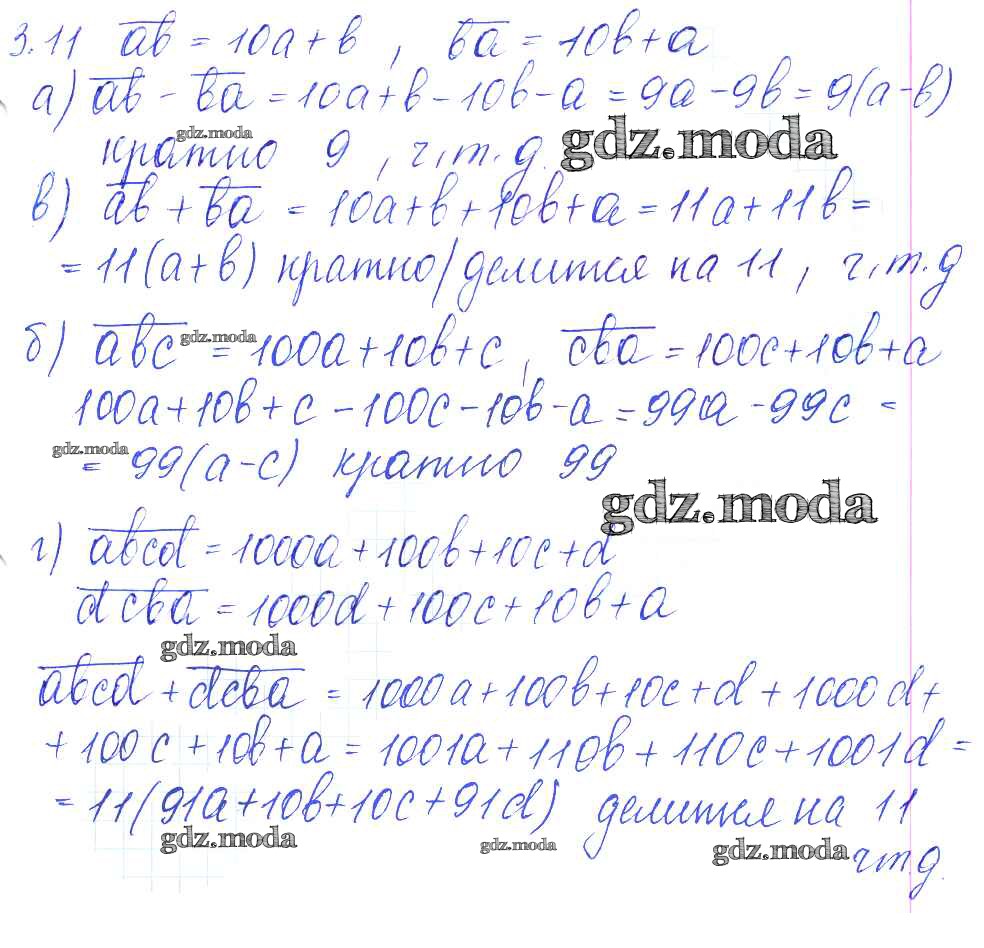 3.11 a̅b̅ = 10a + b , b̅a̅ = 10b + a
а) a̅b̅ - b̅a̅ = 10a + b - 10b - a = 9a - 9b = 9(a - b)
gdz.moda
кратно 9 , ч.т.д.
gdz.moda
в) a̅b̅ + b̅a̅ = 10a + b + 10b + a = 11a + 11b =
= 11(a + b) кратно/делится на 11 , ч.т.д
б) a̅b̅c̅ = 100a + 10b + c , c̅b̅a̅ = 100c + 10b + a
gdz.moda
100a + 10b + c - 100c - 10b - a = 99a - 99c =
gdz.moda
= 99(a - c) кратно 99
gdz.moda
г) a̅b̅c̅d̅ = 1000a + 100b + 10c + d
d̅c̅b̅a̅ = 1000d + 100c + 10b + a
gdz.moda
a̅b̅c̅d̅ + d̅c̅b̅a̅ = 1000a + 100b + 10c + d + 1000d +
+ 100c + 10b + a = 1001a + 110b + 110c + 1001d =
= 11(91a + 10b + 10c + 91d) делится на 11
gdz.moda
gdz.moda
gdz.moda
чтд.